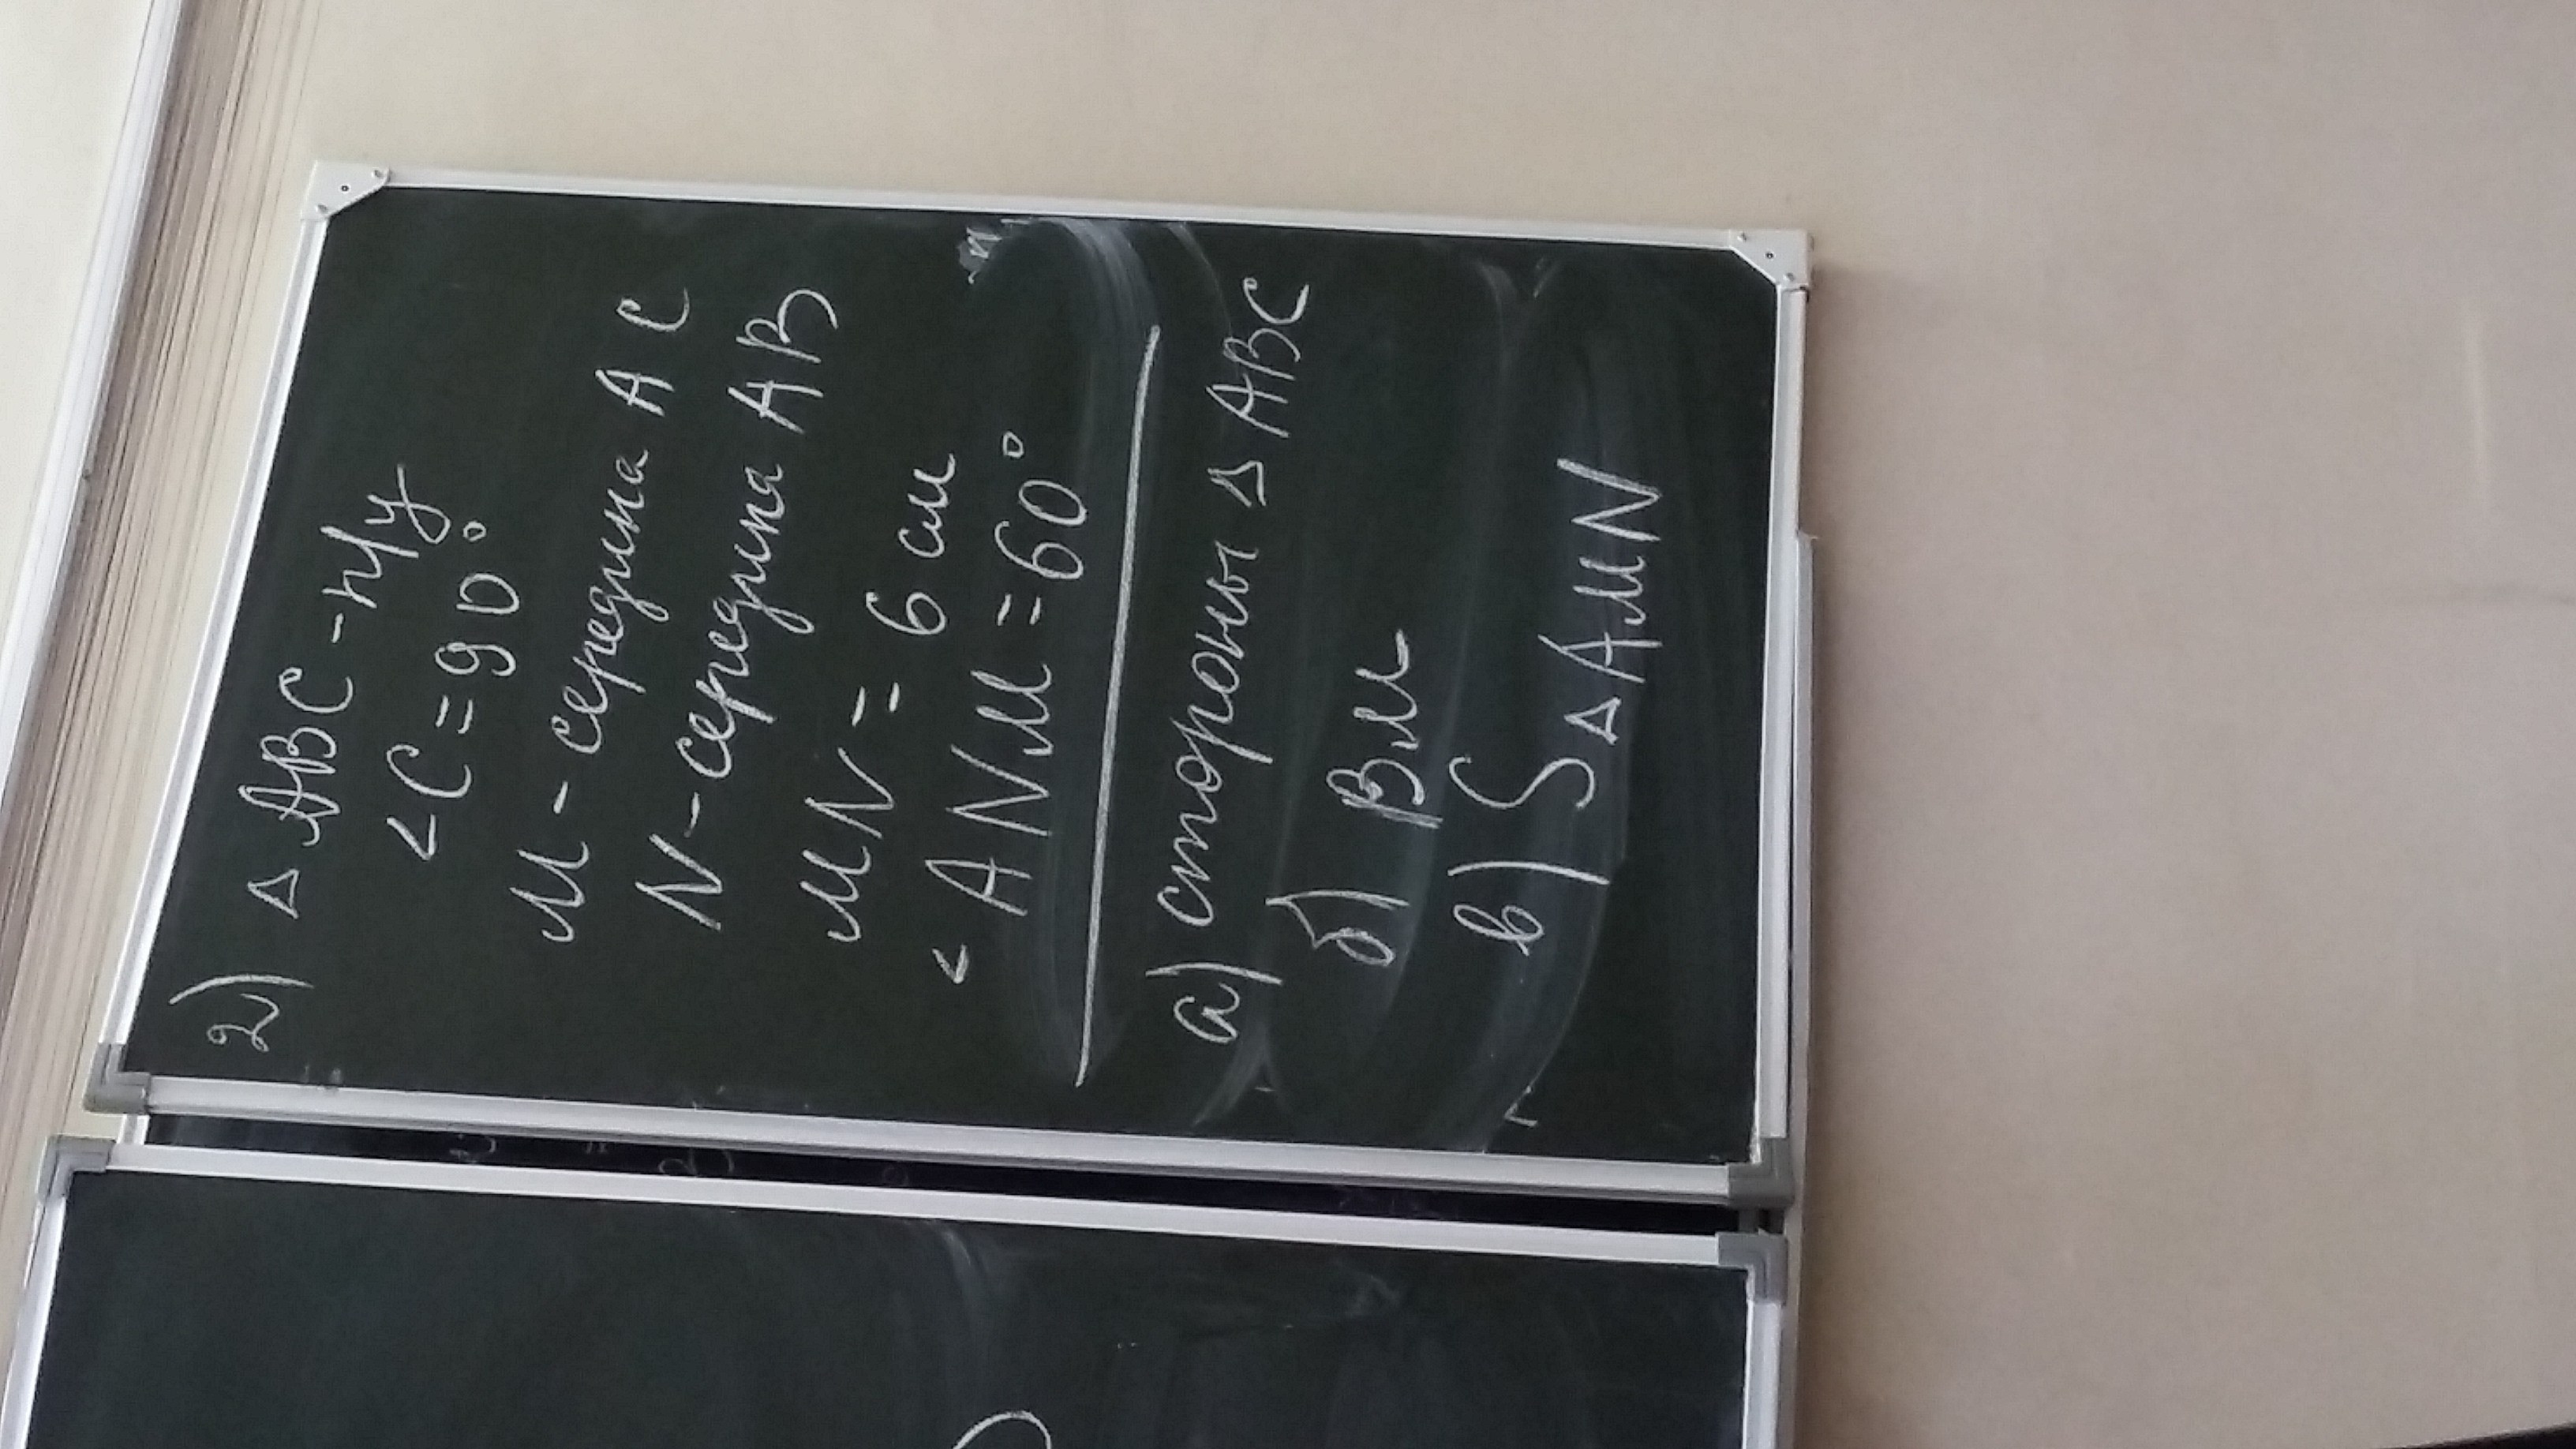 2) △ ABC - п/у
∠C = 90°
M - середина AC
N - середина AB
MN = 6 см
∠ANM = 60°
а) стороны △ ABC
б) BM
в) S △ AMN